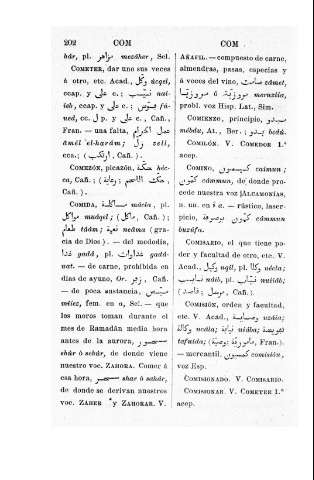 202 COM
hár, pl. مزاهر mezáher, Sel.
COMETER, dar uno sus veces
á otro, etc. Acad., وكّل úcqel,
ccap. y على c.; نيّب
ieb, ccap. y على c.;
ued, cc. ل p. y على c., Cañ.,
Fran. — una falta, عمل الحرام
âmel el-harám; زل zell,
cca.; (ارتكب, Cañ.).
COMEZÓN, picazón, حكة
ca, Cañ.;
Cañ.).
COMIDA, ماكلة mácla, pl.
مواكل muáqel; (ماكل, Cañ.);
طعام tâám; نعمة neâma (gra-
cia de Dios). — del mediodía,
غدا gadá, pl. غداوات gadá-
uat. — de carne, prohibida en
dias de ayuno, Or. زفر, Cañ.
— de poca sustancia,
fem. en a, Sel. — que
los moros toman durante el
mes de Ramadán media hora
antes de la aurora, سحور
shúr ó sehúr, de donde viene
nuestro voc. ZAHORA. Comer á
esa hora, سحر shar ó sehár,
de donde se derivan nuestros
voc. ZAHER y ZAHORAR. V.
COM
AÑAFIL. — compuesto de carne,
almendras, pasas, especias y
á veces del vino, صامت çámet,
مروزيّة ó مروزيا meruzîia,
probl. voz Hisp. Lat., Sim.
COMIENZO, principio, مبدو
mébdu, At., Ber.; بدو bedú.
COMILÓN. V. COMEDOR 1.ª
acep.
COMINO, كميمون caimun;
كمّون cámmun, de donde pro-
cede nuestra voz JALCAMONÍAS,
n. un. en ة a. — rústico, laser-
picio, كمّون بوصوفة cámmun
buzúfa.
COMISARIO, el que tiene po-
der y facultad de otro, etc. V.
Acad., وكيل uqíl, pl. وكلا úcela;
نايب náib, pl. نيّاب nuiéib;
(مرسل, قاصد, Cañ.).
COMISIÓN, orden y facultad,
etc. V. Acad., وصاية uzáia;
وكالة ucála; نيابة niába; تفويضة
tafuída; (مامورية, وصيّة, Fran.).
— mercantil. كمسيون comisión,
voz Esp.
COMISIONADO. V. COMISARIO.
COMISIONAR. V. COMETER 1.ª
acep.